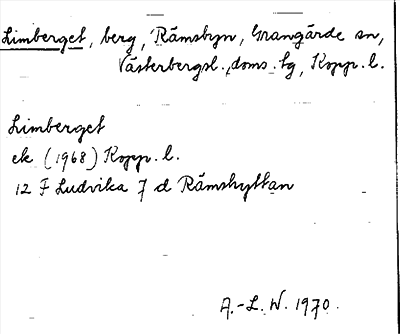 Limberget, berg, Rämsbyn, Grangärde sn,
Västerbergsl. doms. tg, Kopp. l.
Limberget
ek (1968) Kopp. l.
12 F Ludvika 7 d Rämshyttan
A.-L. W. 1970.